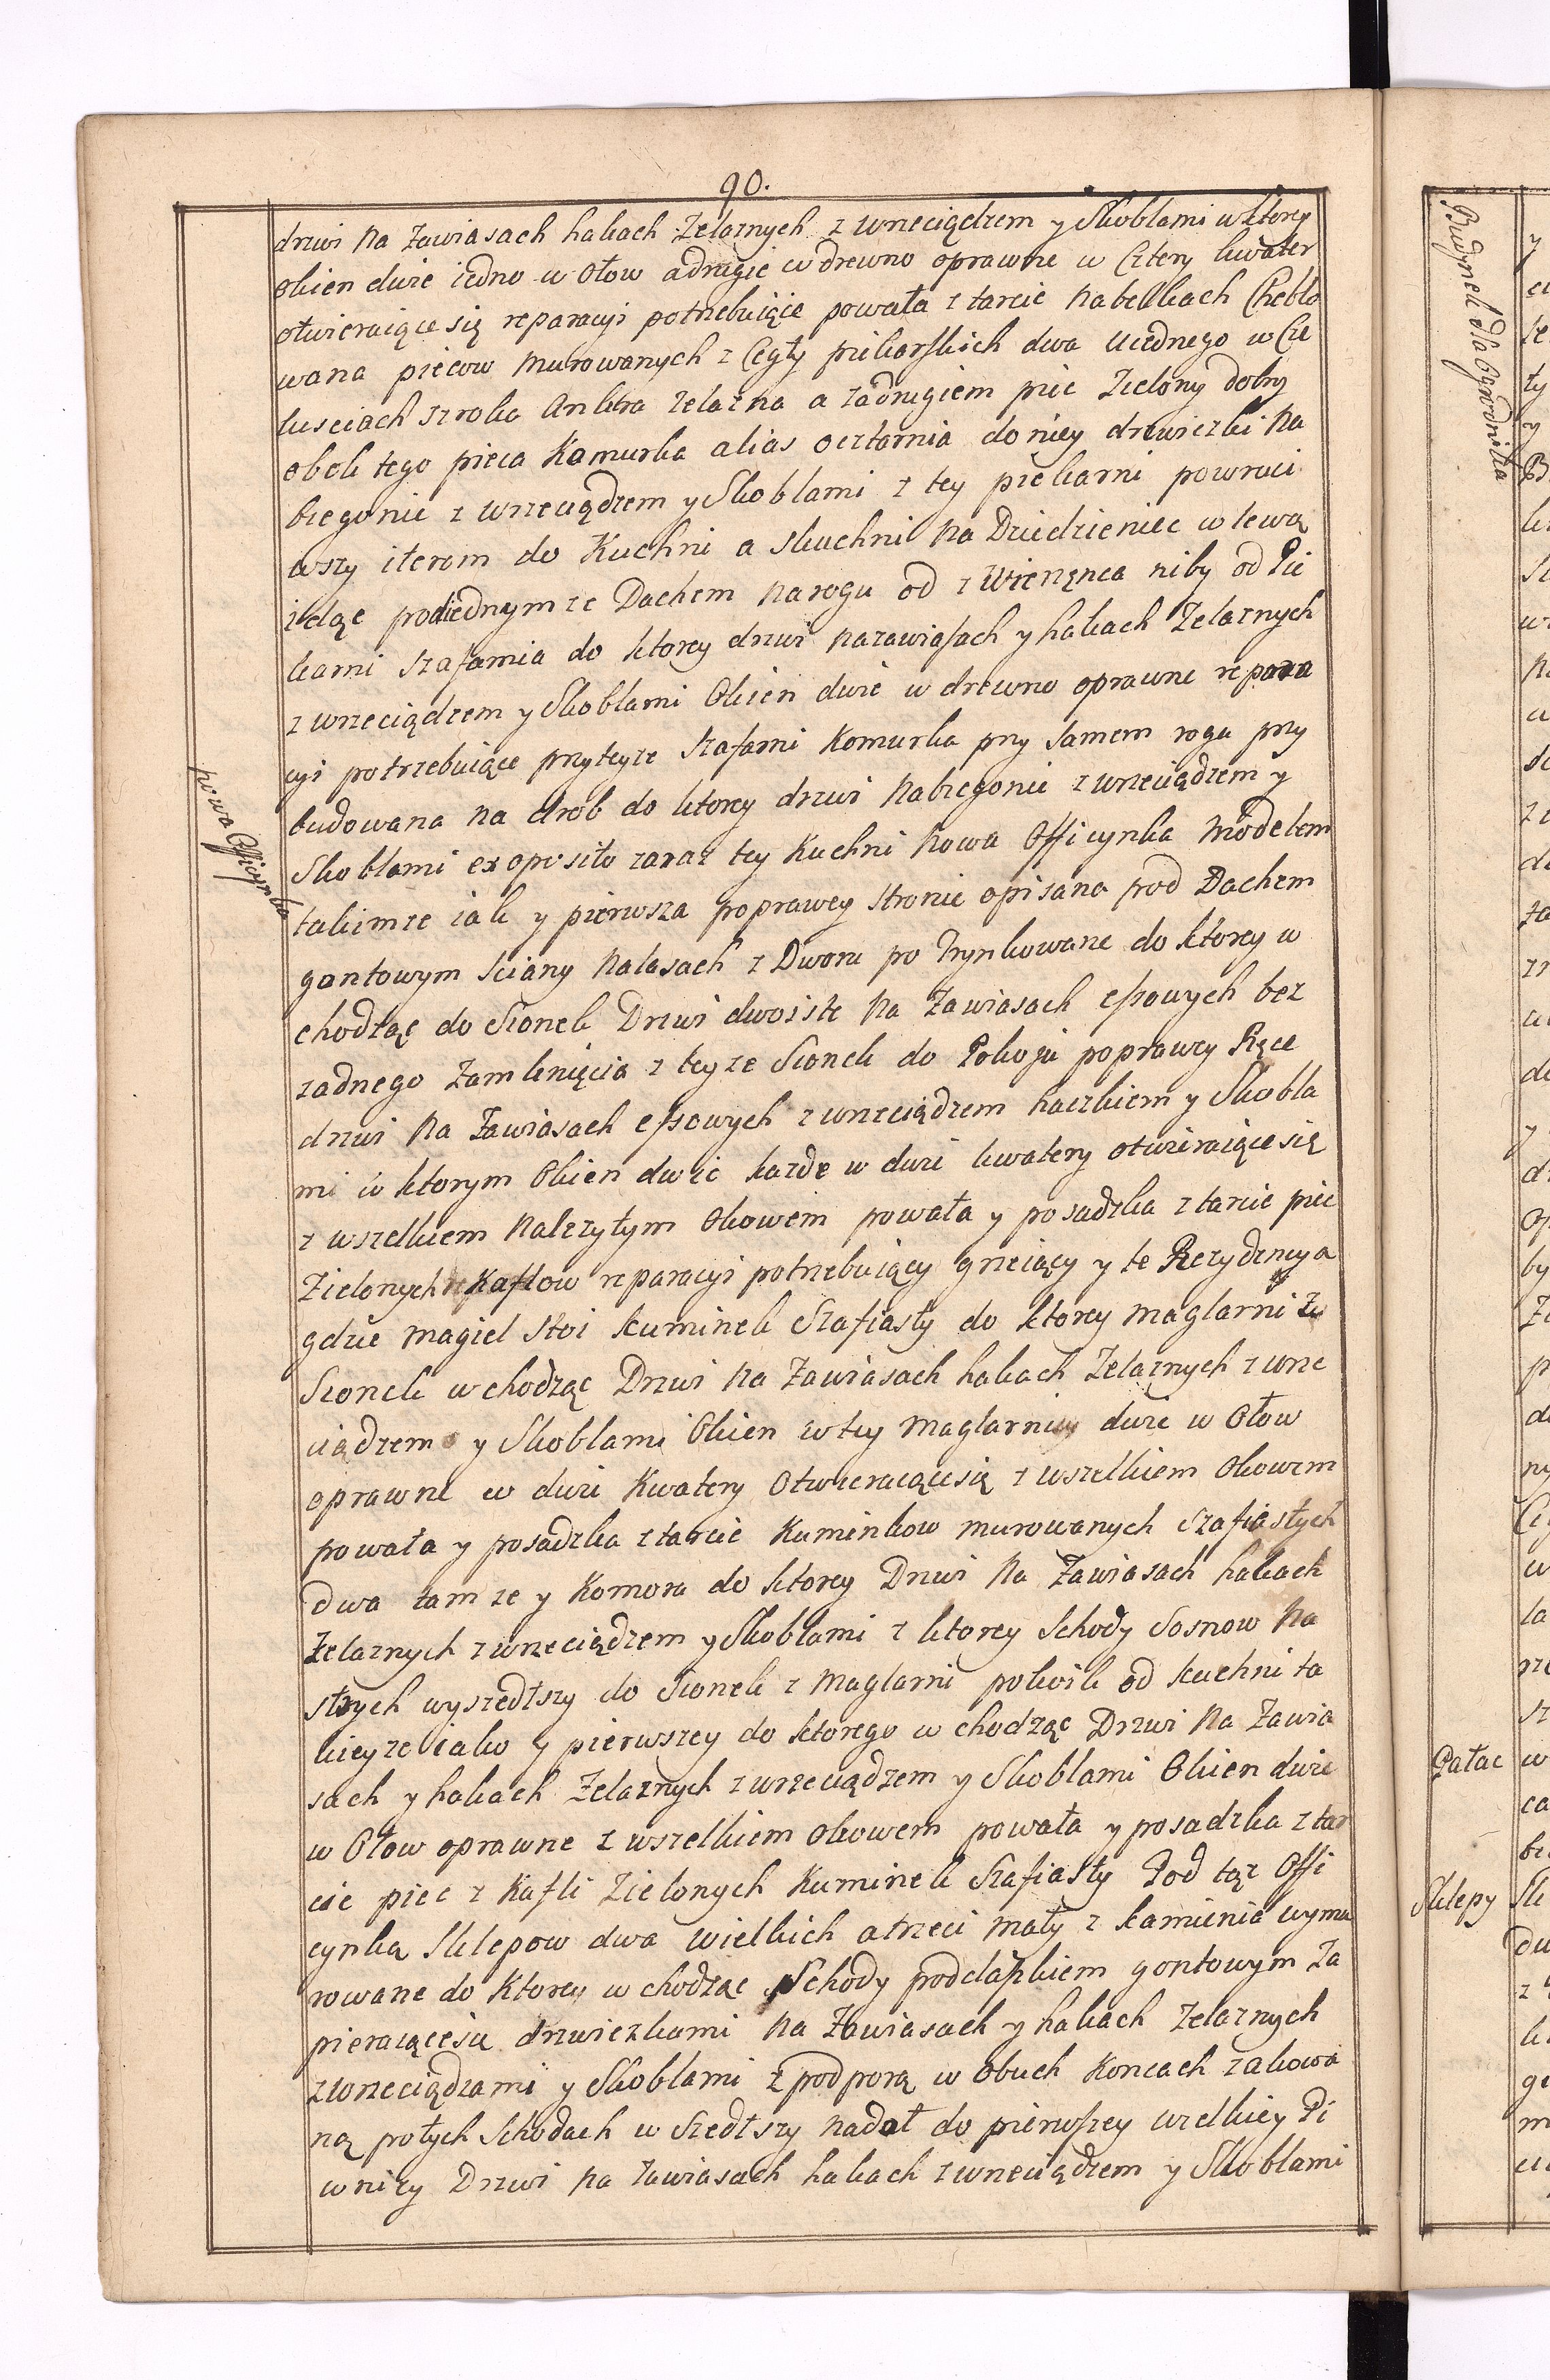 90.
drzwi na zawiasach hakach Zelaznych z wrzeciądzem y Skoblami w ktorey
okien dwie iedno w ołow a drugie w drewno oprawne w Cztery kwater
otwieraiące się reparacyi potrzebuiące powała z tarcic na belkach Cheblo
wana piecow murowanych z Cegły piekarskich dwa u iednego w Cze
lusciach sroka Ankra zelazna a za drugiem piec Zielony dobry
obok tego pieca Kamurka alias ocztarnia do niey drzwiczki na
biegonie z wrzeciądzem y Skoblami z tey piekarni powroci
wszy iterom do Kuchni a s kuchni na Dziedzieniec w lewą
idąc pod iednym ze Dachem na rogu od zwierzęnca niby od Pie
karni szafarnia do ktorey drzwi na zawiasach y hakach Zelaznych
z wrzeciądzem y Skoblami Okien dwie w drewno oprawne repara
cyi potrzebuiące przy teyze szafarni Komurka przy samem rogu przy
budowana na drob do ktorey drzwi na biegonie z wrzeciądzem y
Skoblami ex oposito zaraz tey Kuchni Nowa Officynka modelem
takimze iak y pierwsza po prawey stronie opisana pod Dachem
gontowym sciany na lasach z Dworu po Trynkowane do ktorey w
chodząc do Sionek Drzwi dwoiste na Zawiasach essowych bez
zadnego Zamknięcia z teyze Sionek do Pokoju po prawey Ręce
drzwi na Zawiasach essowych z wrzeciądzem haczkiem y Skobla
mi w ktorym Okien dwie kazde w dwie kwatery otwieraiące się
z wszelkiem nalezytym Okowem powała y posadzka z tarcic piec
Zielonych Kaflow reparacyi potrzebuiący grzeiący y te Rezydencya
gdzie magiel stoi kuminek Szafiasty do ktorey maglarni Ze
Sionek wchodząc Drzwi na Zawiasach hakach Zelaznych z wrze
ciądzem y Skoblami Okien w tey maglarniey dwie w Ołow
oprawne w dwie Kwatery Otwieraiące się z wszelkiem Okowem
powała y posadzka z tarcic Kuminkow murowanych szafiastych
dwa tam ze y Komora do ktorey Drzwi na Zawiasach hakach
Zelaznych z wrzeciądzem y Skoblami z ktorey schody Sosnow na
strych wyszedłszy do Sionek z maglarni pokoik od kuchni ta
kieyze iako y pierwszey do ktorego wchodząc Drzwi na Zawia
sach y hakach Zelaznych z wrzeciądzem y Skoblami Okien dwie
w Ołow oprawne z wszelkiem okowem powała y posadzka z tar
cic piec z Kafli Zielonych Kuminek Szafiasty Pod tąz Offi
cynką Sklepow dwa wielkich a trzeci mały z kamienia wymu
rowane do ktorey wchodząc Schody pod daszkiem gontowym Za
pieraiące sie drzwiczkami na Zawiasach y hakach Zelaznych
z wrzeciądzami y Skoblami z podporą w obuch Koncach zakowa
ną po tych Schodach w szedłszy na doł do pierwszey wielkiey Pi
wnicy Drzwi na zawiasach hakach z wrzeciądzem y Skoblami
nowa Officynka
Budynek dla Ogrodnika
Pałac
Sklepy